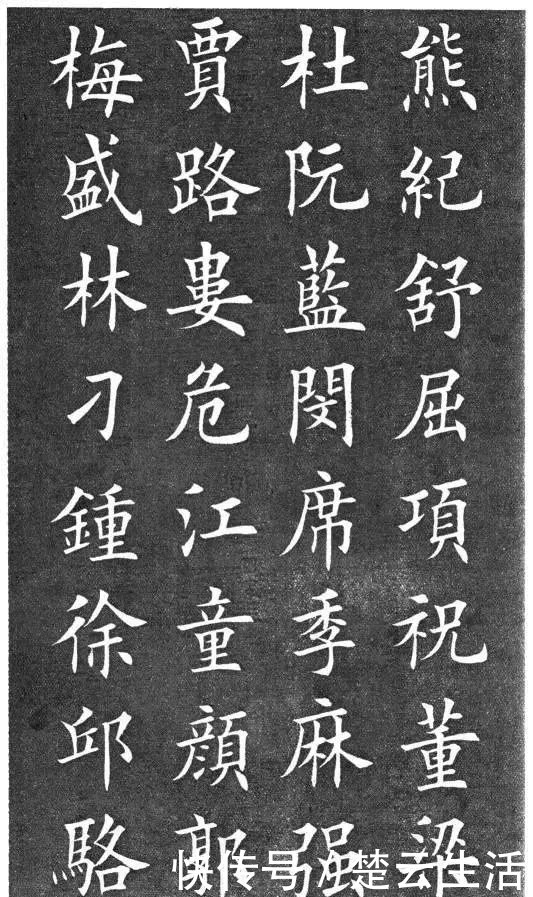 熊紀舒屈項祝董梁
杜阮藍閔席季麻强
賈路婁危江童顔郭
梅盛林刁鍾徐邱駱
快传号/楚云生活